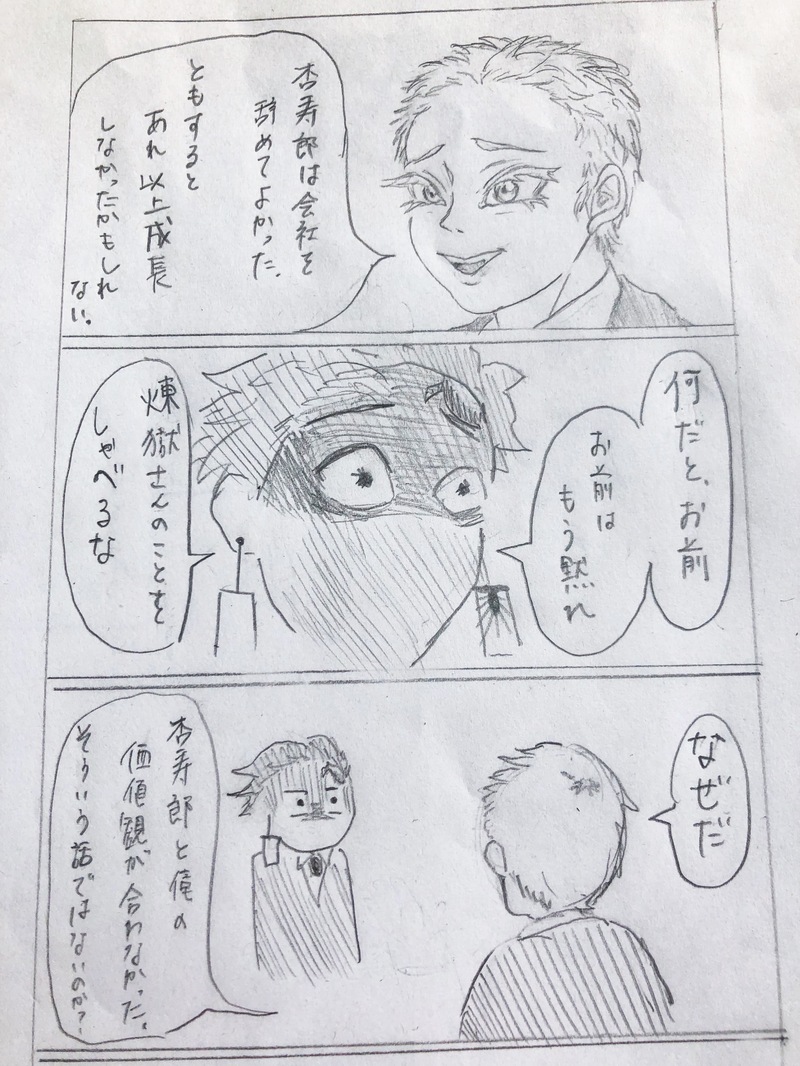 杏寿郎は会社を
辞めてよかった.
ともすると
あれ以上成長
しなかったかもしれ
ない.
何だと、お前
お前は
もう黙れ
煉獄さんのことを
しゃべるな
なぜだ
杏寿郎と俺の
価値観が合わなかった.
そういう話ではないのか?